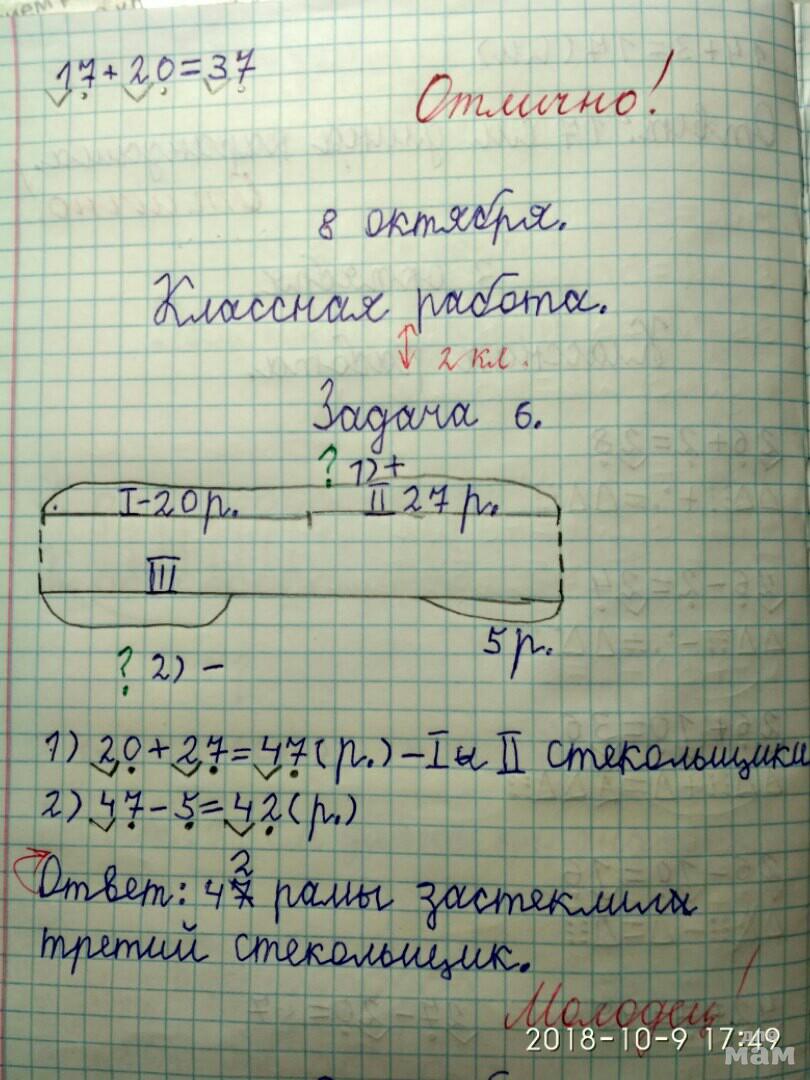 17+20=37
Отлично!
8 октября.
Классная работа.
2 кл.
Задача 6.
? 1)+
I-20р. II 27р.
III
5р.
? 2) -
1) 20+27=47(р.) – I и II стекольщики
2) 47-5=42(р.)
2
Ответ: 47 рамы застеклили
третий стекольщик.
Молодец!
2018-10-9 17:49
для
мам